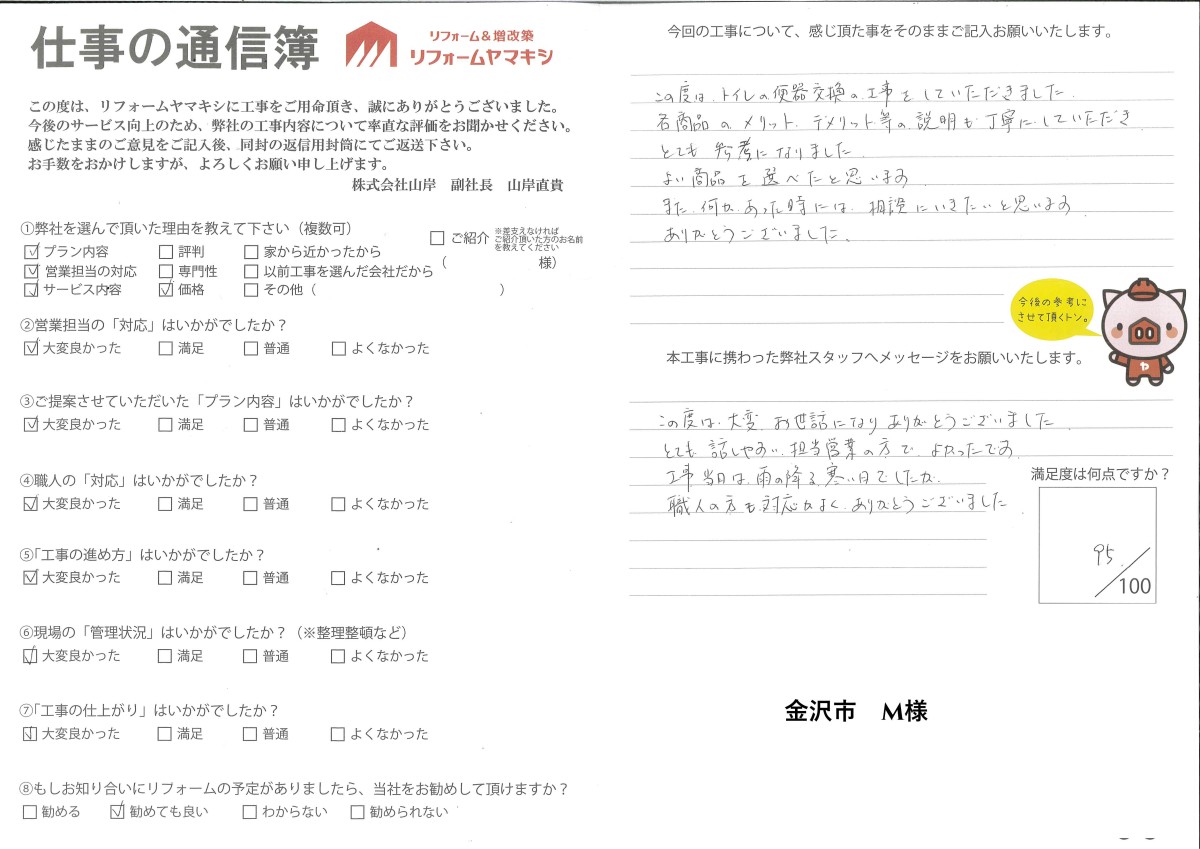 仕事の通信簿
リフォーム&増改築
リフォームヤマキシ
この度は、リフォームヤマキシに工事をご用命頂き、誠にありがとうございました。
今後のサービス向上のため、弊社の工事内容について率直な評価をお聞かせください。
感じたままのご意見をご記入後、同封の返信用封筒にてご返送下さい。
お手数をおかけしますが、よろしくお願い申し上げます。
株式会社山岸 副社長 山岸直貴
①弊社を選んで頂いた理由を教えて下さい（複数可）
☑プラン内容 □評判 □家から近かったから
☑営業担当の対応 □専門性 □以前工事を選んだ会社だから
☑サービス内容 ☑価格 □その他（ ）
□ご紹介 ※差支えなければ
ご紹介頂いた方のお名前
を教えてください
（ 様）
②営業担当の「対応」はいかがでしたか？
☑大変良かった □満足 □普通 □よくなかった
③ご提案させていただいた「プラン内容」はいかがでしたか？
☑大変良かった □満足 □普通 □よくなかった
④職人の「対応」はいかがでしたか？
☑大変良かった □満足 □普通 □よくなかった
⑤「工事の進め方」はいかがでしたか？
☑大変良かった □満足 □普通 □よくなかった
⑥現場の「管理状況」はいかがでしたか？（※整理整頓など）
☑大変良かった □満足 □普通 □よくなかった
⑦「工事の仕上がり」はいかがでしたか？
☑大変良かった □満足 □普通 □よくなかった
⑧もしお知り合いにリフォームの予定がありましたら、当社をお勧めして頂けますか？
□勧める ☑勧めても良い □わからない □勧められない
今回の工事について、感じ頂た事をそのままご記入お願いいたします。
この度は、トイレの便器交換の工事をしていただきました。
各商品のメリット、デメリット等の説明も丁寧にしていただき
とても参考になりました
よい商品を選べたと思います
また、何かあった時には、相談にいきたいと思います
ありがとうございました。
今後の参考に
させて頂くトン。
ヤ
本工事に携わった弊社スタッフへメッセージをお願いいたします。
この度は、大変、お世話になりありがとうございました
とても話しやすい担当営業の方で、よかったです
工事当日は、雨の降る、寒い日でしたが、
職人の方も対応がよく、ありがとうございました
満足度は何点ですか？
95/100
金沢市 M様